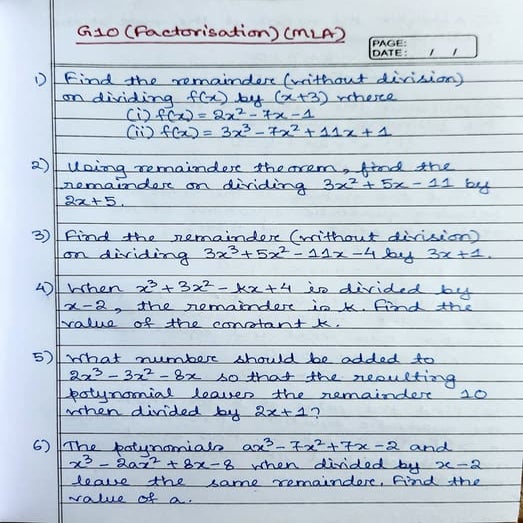 G10 (Factorisation) (MLA)
PAGE:
DATE: / /
1) Find the remainder (without division)
on dividing f(x) by (x+3) where
(i) f(x) = 2x² - 7x - 1
(ii) f(x) = 3x³ - 7x² + 11x + 1
2) Using remainder theorem, find the
remainder on dividing 3x² + 5x - 11 by
2x+5.
3) Find the remainder (without division)
on dividing 3x³ + 5x² - 11x - 4 by 3x + 1.
4) When x³ + 3x² - kx + 4 is divided by
x-2, the remainder is k. Find the
value of the constant k.
5) What number should be added to
2x³ - 3x² - 8x so that the resulting
polynomial leaves the remainder 10
when divided by 2x+1?
6) The polynomials ax³ - 7x² + 7x - 2 and
x³ - 2ax² + 8x - 8 when divided by x-2
leave the same remainder. Find the
value of a.